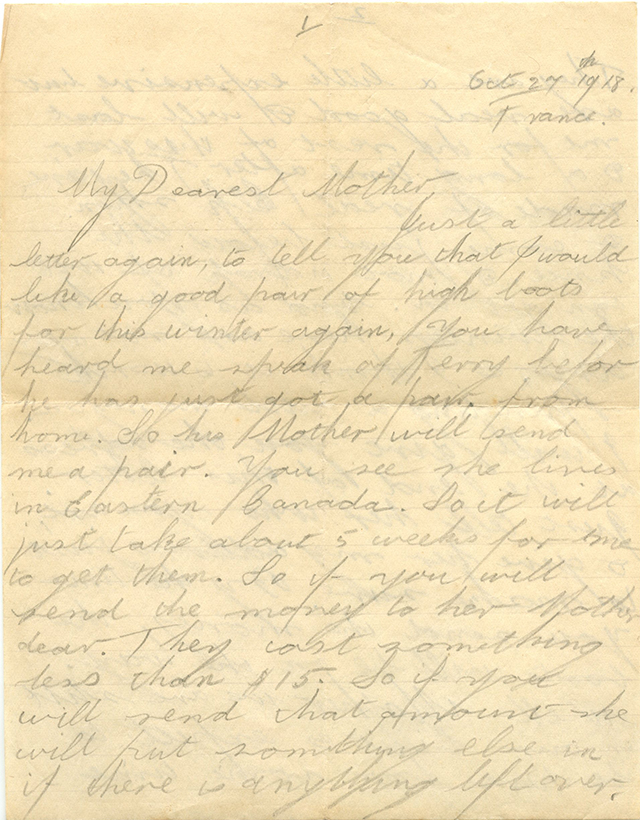 1
Oct. 27th 1918.
France.
My Dearest Mother,
Just a little
letter again, to tell you that I would
like a good pair of high boots
for this winter again, You have
heard me speak of Kerry befor
he has just got a pair from
home. So his Mother will send
me a pair. You see she lives
in Eastern Canada. So it will
just take about 5 weeks for me
to get them. So if you will
send the money to her Mother
dear. They cost something
less than $15. So if you
will send that amount she
will put something else in
if there is anything left over.